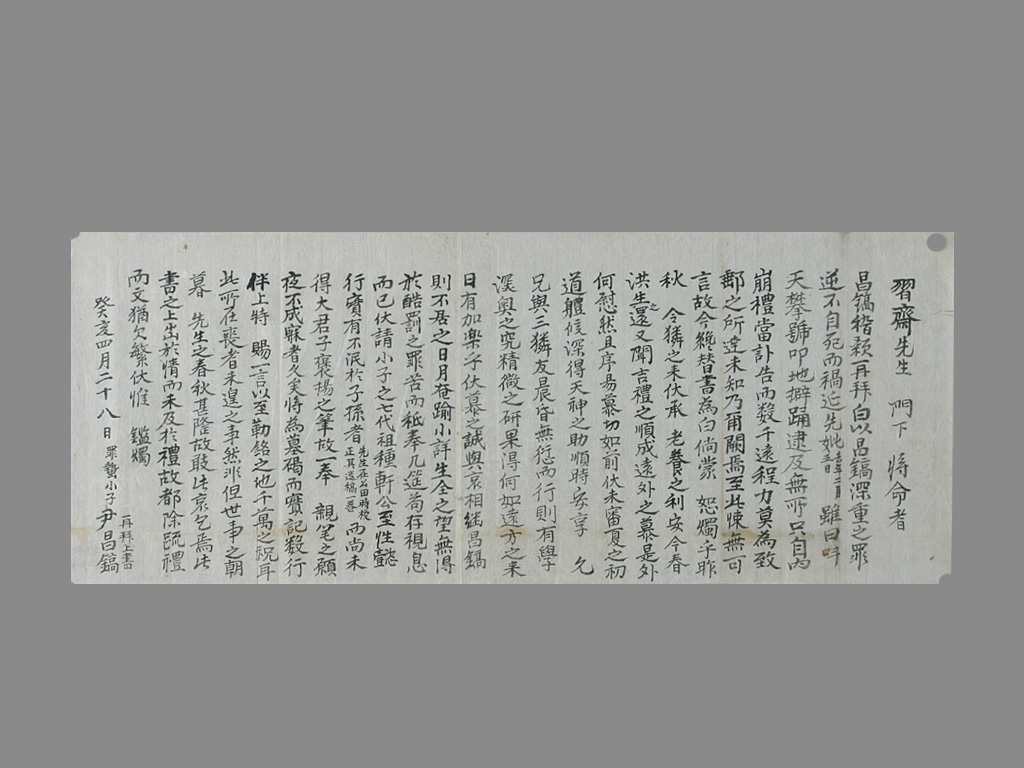 習齋先生 門下 將命者
昌鎬稽顙再拜白以昌鎬深重之罪
逆不自死而禍延先妣去年十二月五日雖曰叫
天攀號叩地擗踊逮及無所只自內
崩禮當訃告而數千遠程力莫為致
郵之所達未知乃爾闕焉至此悚無可
言故今繞替書為白倘蒙 恕燭乎昨
秋 令獜之来伏承 老養之利安今春
洪生還又聞吉禮之順成遠外之慕是外
何慰然且序易慕切如前伏未審夏之初
道體候深得天神之助順時安享 允
兄與三獜友晨昏無愆而行則有學
深奥之究精微之研果得何如遠方之来
日有加樂乎伏慕之誠與哀相継昌鎬
則不居之日月奄踰小祥生全之望無得
於酷罰之罪苦而秪奉几筵苟存視息
而已伏請小子之七代祖種軒公至性懿
行實有不泯於子孫者先生在山田時校正其遺稿一卷而尚未
得大君子褒揚之筆故一奉 親笔之願
夜不成寐者久矣将為墓碣而實記數行
伴上特 賜一言以至勒銘之地千萬之祝耳
此所在喪者未遑之事然非但世事之朝
暮 先生之春秋甚隆故敢此哀乞焉此
書之上出於情而未及於禮故都除疏禮
而文猶欠繁伏惟 鑑燭
癸亥四月二十八日罪蟄小子尹昌鎬再拜上書